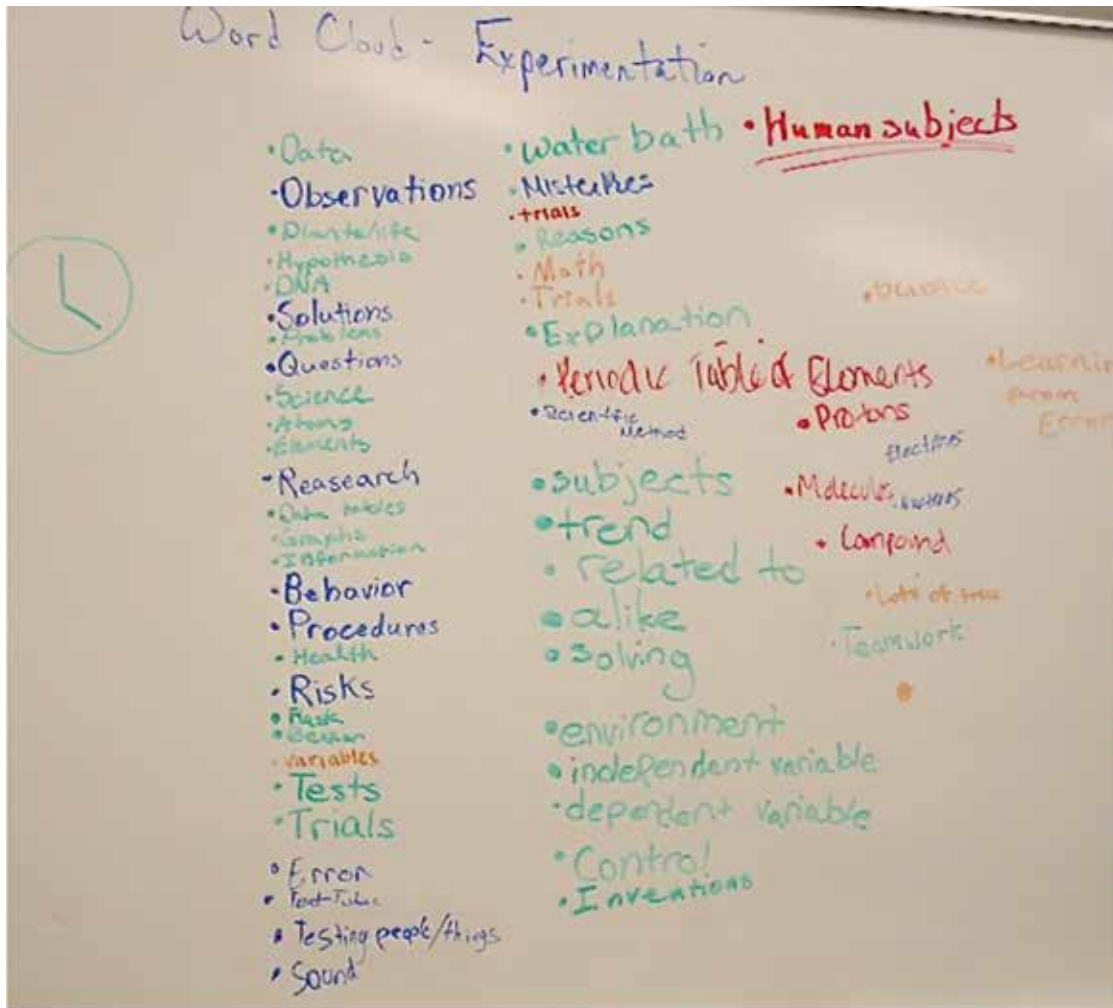 Word Cloud - Experimentation
• Data
• Observations
• Plants/life
• Hypothesis
• DNA
• Solutions
• Problems
• Questions
• Science
• Atoms
• Elements
• Reasearch
• Data tables
• Graphs
• Information
• Behavior
• Procedures
• Health
• Risks
• Variables
• Tests
• Trials
• Error
• Testing people/things
• Sound
• Water bath
• Mistakes
• trials
• Reasons
• Math
• Trials
• Explanation
• Periodic Table of Elements
• Scientific
Method
• subjects
• trend
• related to
• alike
• solving
• environment
• independent variable
• dependent variable
• Control
• Inventions
• Human subjects
• Protons
• Molecules
• Compound
• Lots of
• Teamwork
• Learnin
from
Error